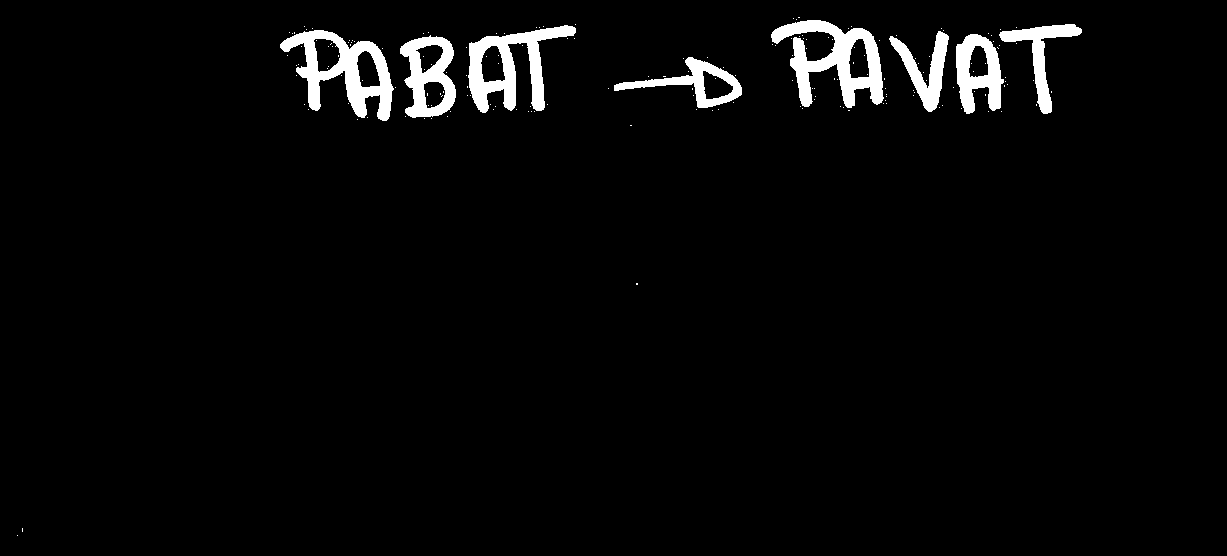 PABAT → PAVAT